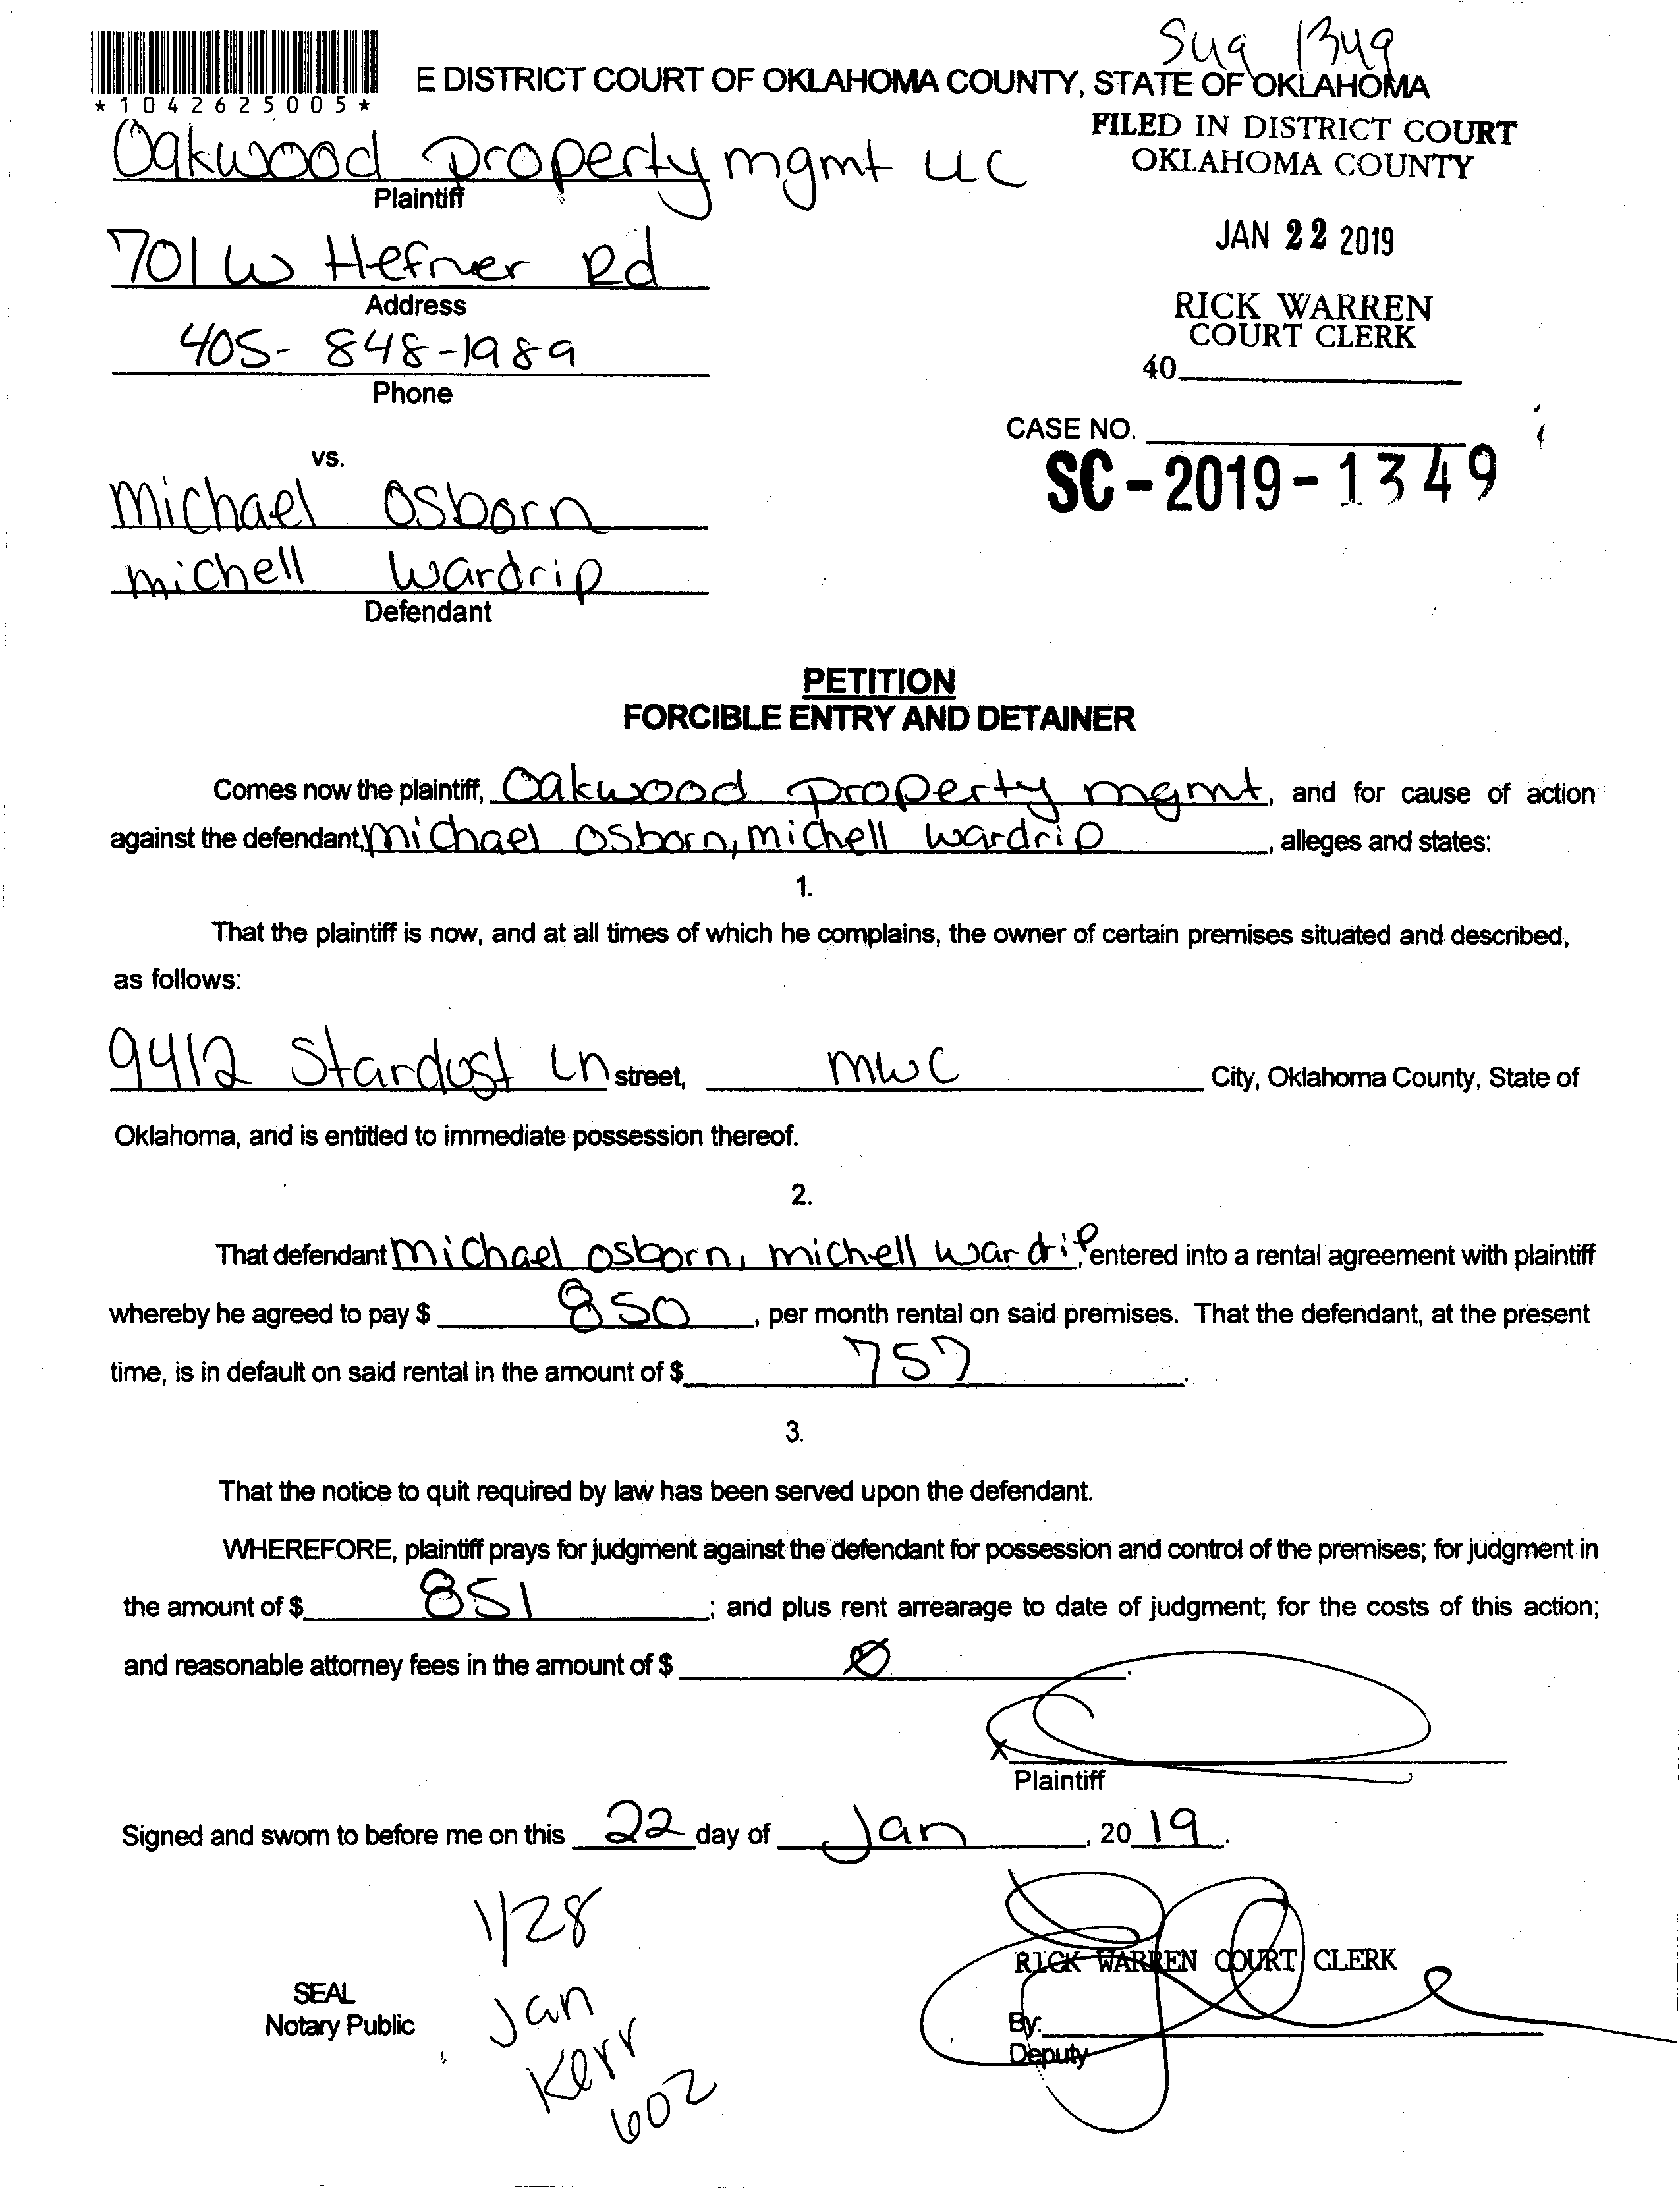 Sug 1349
*1042625005*
E DISTRICT COURT OF OKLAHOMA COUNTY, STATE OF OKLAHOMA
FILED IN DISTRICT COURT
OKLAHOMA COUNTY
Oakwood property mgmt LLC
Plaintiff
JAN 22 2019
701 W Hefner Rd
Address
RICK WARREN
COURT CLERK
405-848-1989
40
Phone
CASE NO.
vs.
SC-2019-1349
Michael Osborn
michell wardrip
Defendant
PETITION
FORCIBLE ENTRY AND DETAINER
Comes now the plaintiff, Oakwood property mgmt, and for cause of action
against the defendant, Michael Osborn, michell wardrip, alleges and states:
1.
That the plaintiff is now, and at all times of which he complains, the owner of certain premises situated and described,
as follows:
9412 Stardust Ln street, MWC City, Oklahoma County, State of
Oklahoma, and is entitled to immediate possession thereof.
2.
That defendant Michael osborn, michell wardrip, entered into a rental agreement with plaintiff
whereby he agreed to pay $ 850, per month rental on said premises. That the defendant, at the present
time, is in default on said rental in the amount of $ 757.
3.
That the notice to quit required by law has been served upon the defendant.
WHEREFORE, plaintiff prays for judgment against the defendant for possession and control of the premises; for judgment in
the amount of $ 851; and plus rent arrearage to date of judgment; for the costs of this action;
and reasonable attorney fees in the amount of $ 0.
x
Plaintiff
Signed and sworn to before me on this 22 day of Jan, 2019.
1/28
RICK WARREN COURT CLERK
SEAL
Notary Public
Jan
Kerr
602
By:
Deputy